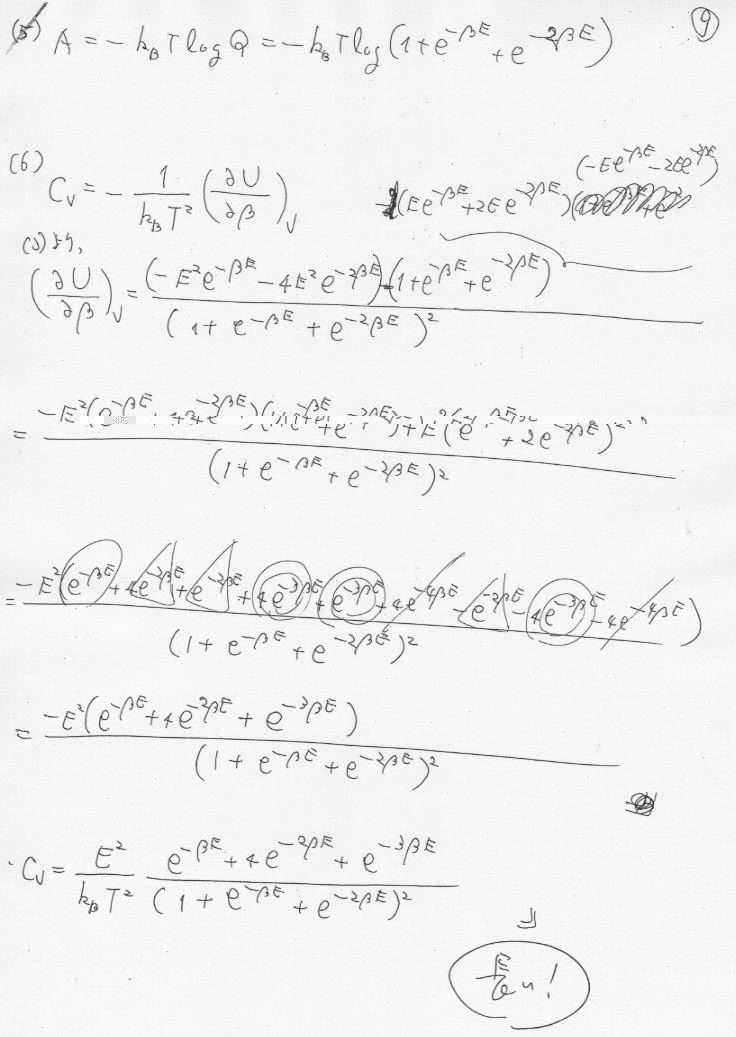 ⑨
(5) A = -k_B T log Q = -k_B T log (1+e^{-βE}+e^{-2βE})
(6) C_V = - \frac{1}{k_B T^2} (\frac{∂U}{∂β})_V
(-Ee^{-βE}-2Ee^{-2βE})
-(Ee^{-βE}+2Ee^{-2βE})
(3)より,
(\frac{∂U}{∂β})_V = \frac{(-E^2e^{-βE}-4E^2e^{-2βE})(1+e^{-βE}+e^{-2βE})}{(1+e^{-βE}+e^{-2βE})^2}
= \frac{-E^2(e^{-βE}+4e^{-2βE})(1+e^{-βE}+e^{-2βE})+E^2(e^{-βE}+2e^{-2βE})^2}{(1+e^{-βE}+e^{-2βE})^2}
= \frac{-E^2(e^{-βE}+4e^{-2βE}+e^{-2βE}+4e^{-3βE}+e^{-3βE}+4e^{-4βE}-e^{-2βE}-4e^{-3βE}-4e^{-4βE})}{(1+e^{-βE}+e^{-2βE})^2}
= \frac{-E^2(e^{-βE}+4e^{-2βE}+e^{-3βE})}{(1+e^{-βE}+e^{-2βE})^2}
∴ C_V = \frac{E^2}{k_B T^2} \frac{e^{-βE}+4e^{-2βE}+e^{-3βE}}{(1+e^{-βE}+e^{-2βE})^2}